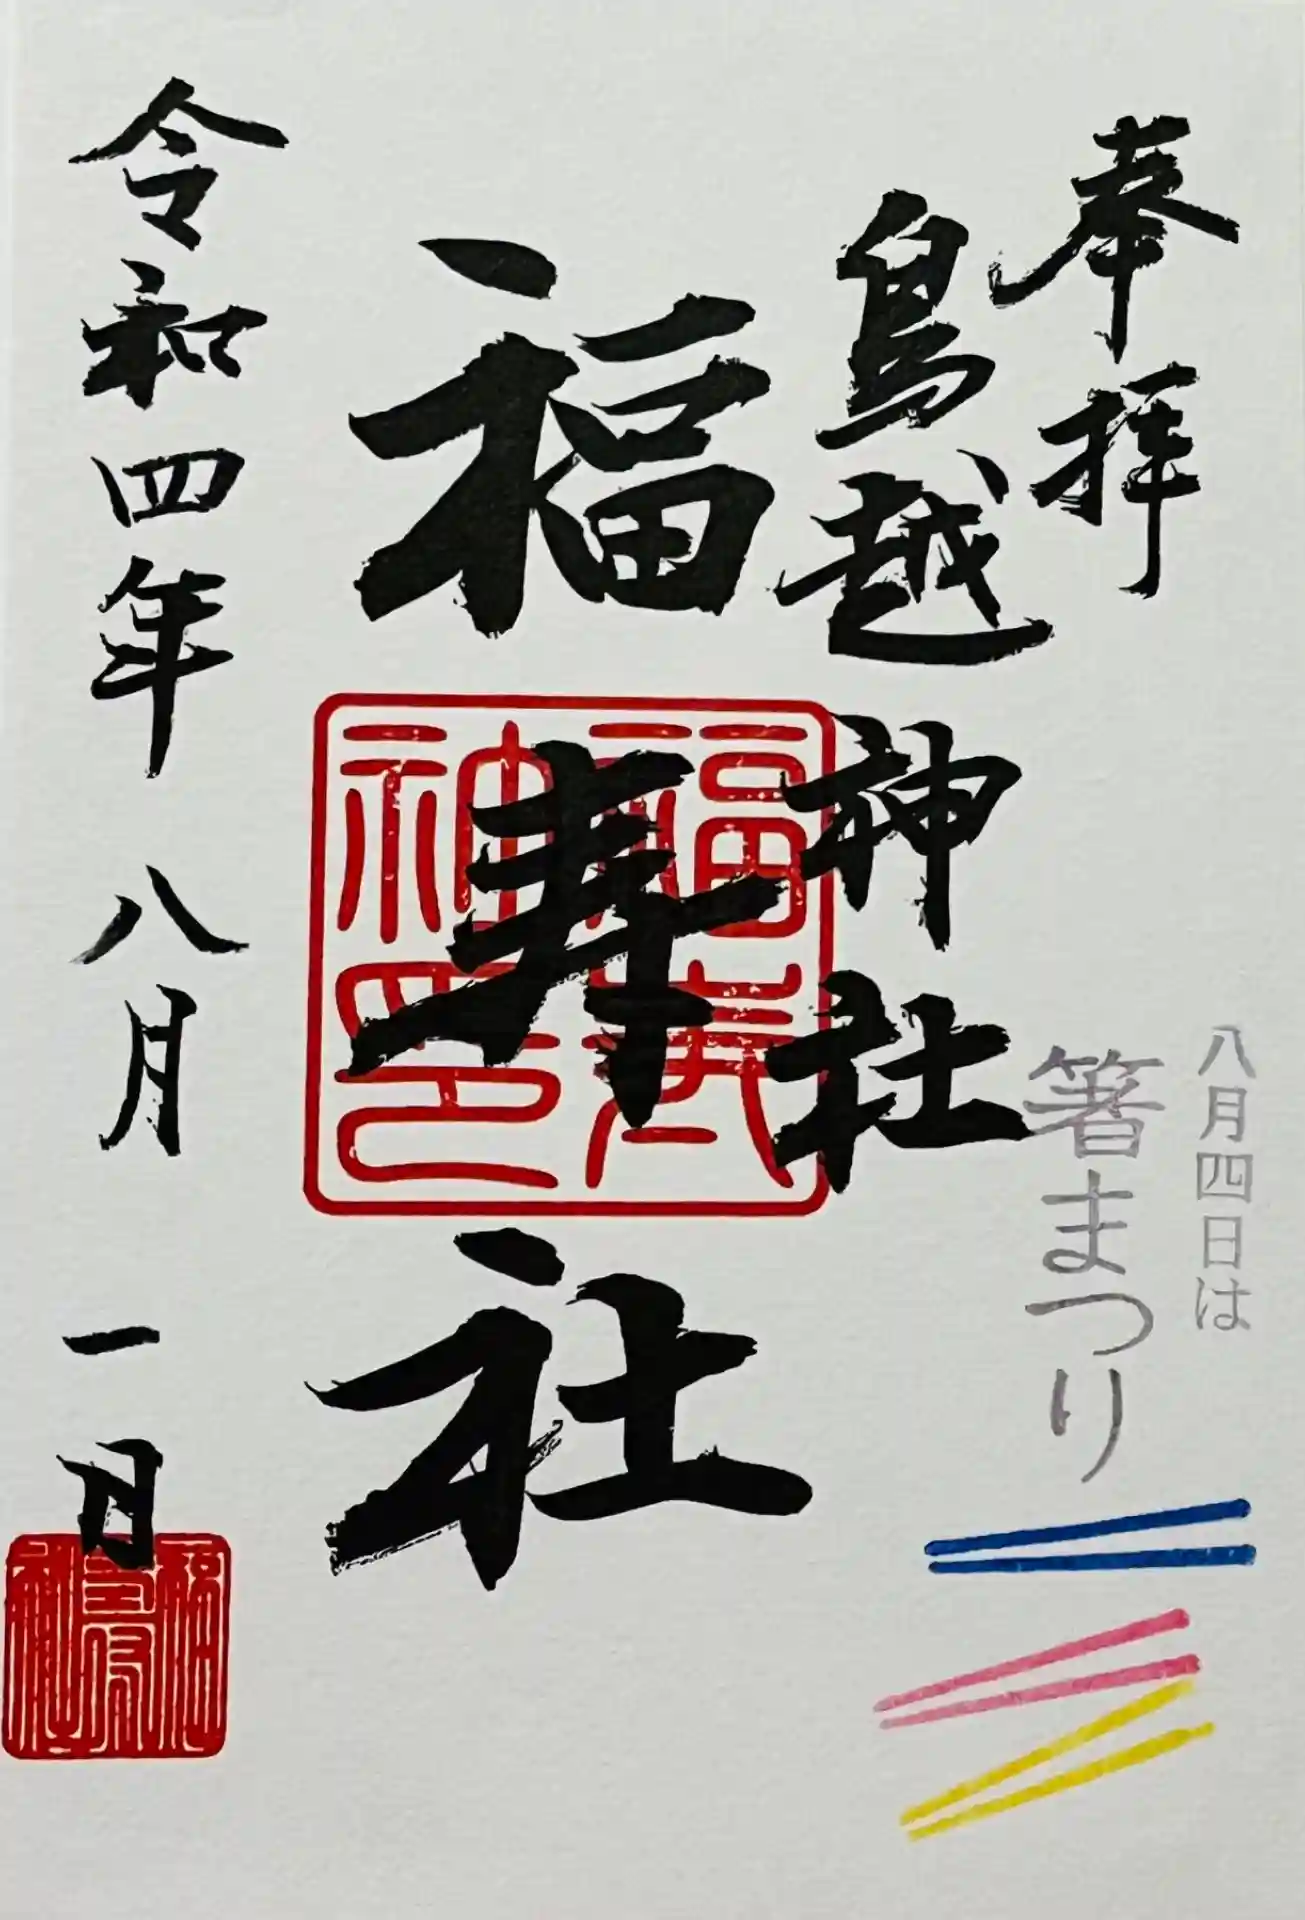 奉拝
八月四日は
箸まつり
鳥越神社
福寿社
福寿神印
令和四年 八月 一日
福寿社